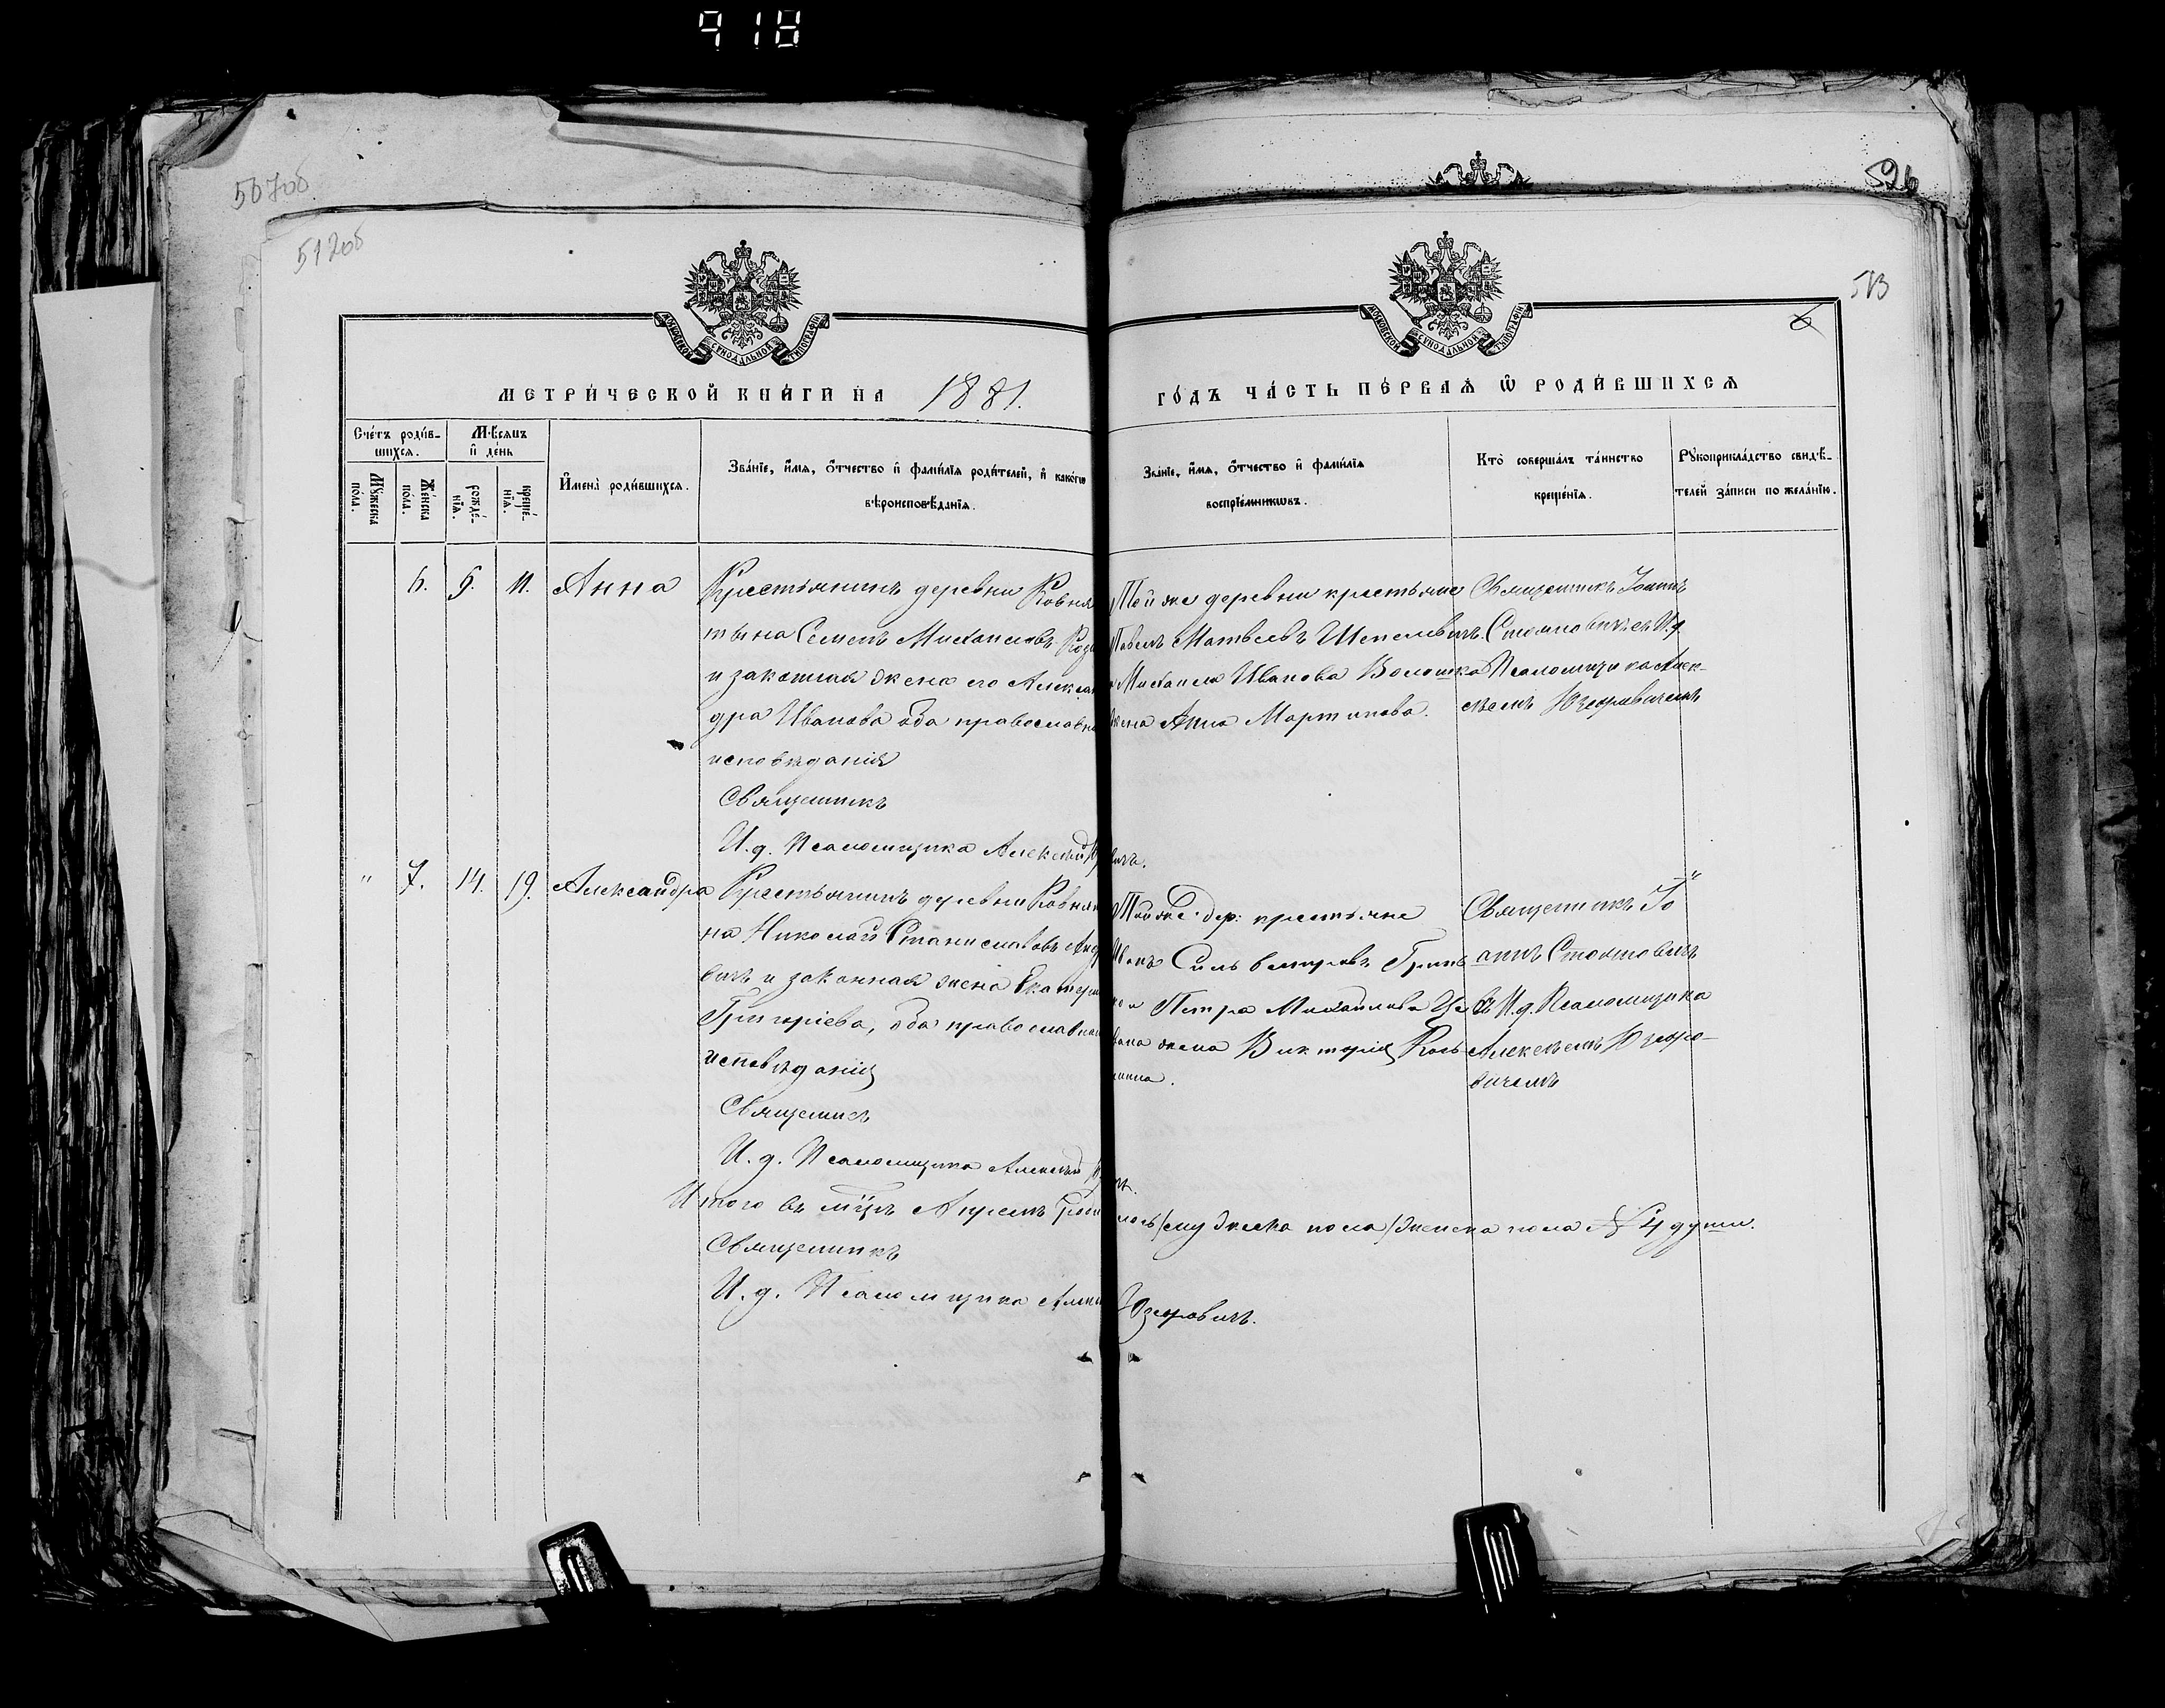 918
507об
526
512об
513
6
МОСКОВСКОЙ СѴНОДАЛЬНОЙ ТИПОГРАФІИ
МОСКОВСКОЙ СѴНОДАЛЬНОЙ ТИПОГРАФІИ
МЕТРИ́ЧЕСКОЙ КНИ́ГИ НА 1881.
ГО́ДЪ ЧА́СТЬ ПЕ́РВАѦ Ѡ РОДИ́ВШИХСѦ
Сче́тъ роди́в-
шихсѧ.
Мꙋ́жеска по́ла.
Же́нска по́ла.
Мѣ́сѧцъ
и де́нь
рожде́-
нїѧ.
креще́-
нїѧ.
Имена̀ роди́вшихсѧ.
Зва́нїе, и́мѧ, ѻ́тчество и фами́лїѧ роди́телей, и како́гѡ
вѣроисповѣ́данїѧ.
Зва́нїе, и́мѧ, ѻ́тчество и фами́лїѧ
воспрїе́мникѡвъ.
Кто̀ соверша́лъ та́инство
креще́нїѧ.
Рꙋкоприкла́дство свидѣ́-
телей за́писи по жела́нїю.
6. 9. 11. Анна
Крестьянинъ деревни Ковня
тына Семенъ Михаиловъ
и законная жена его Алексан
дра Иванова оба православна
исповѣданія
Священникъ
И. д. Псаломщика Алексѣй
Той же деревни крестьяне
Павелъ Матвѣевъ
Михаила Иванова Волошка
жена Анна Мартинова.
Священникъ Іоаннъ
Стояновичъ съ И.д.
Псаломщика Алек-
сѣемъ Юзефовичемъ
" 7. 14. 19. Александра
Крестьянинъ деревни
на Николай Станиславовъ
вичъ и законная жена Екатери
Григоріева, оба православна
исповѣданія
Священникъ
И. д. Псаломщика Алексѣй
Той же дер: крестьяне
Сильвестровъ
Петра Михайлова
жена Викторія
Священникъ Іо
аннъ Стояновичъ
съ И.д. Псаломщика
Алексѣемъ Юзефо-
вичемъ
Итого въ мѣцѣ Апрелѣ
мужеска пола женска пола 4 души.
Священникъ
И. д. Псаломщика Юзефовичъ.